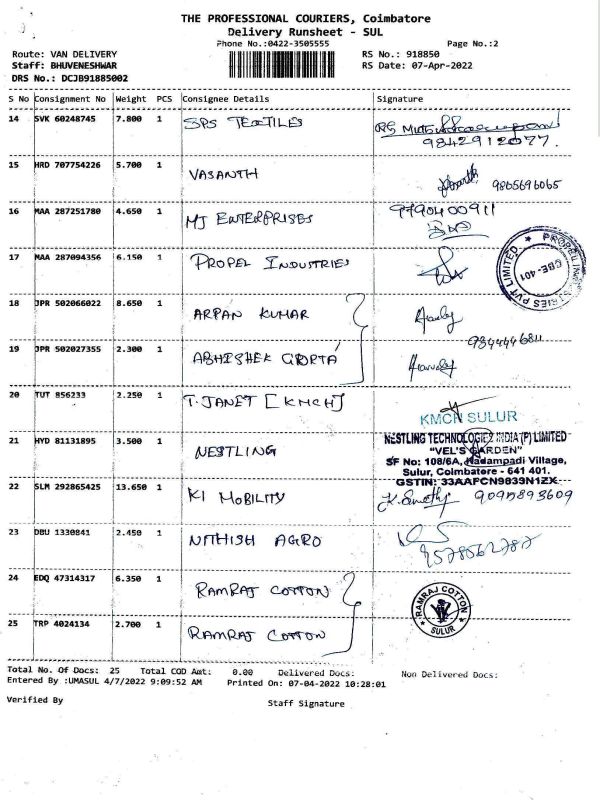 THE PROFESSIONAL COURIERS, Coimbatore
Delivery Runsheet - SUL
Phone No.:0422-3505555 Page No.:2
Route: VAN DELIVERY RS No.: 918850
Staff: BHUVENESHWAR RS Date: 07-Apr-2022
DRS No.: DCJB91885002
S No Consignment No Weight PCS Consignee Details Signature
14 SVK 60248745 7.800 1 SPS TEXTILES
9842912077.
15 HRD 707754226 5.700 1 VASANTH 9865696065
16 MAA 287251780 4.650 1 MJ ENTERPRISES 9790400911
17 MAA 287094356 6.150 1 PROPEL INDUSTRIES
PROPEL INDUSTRIES PVT LIMITED
CBE-401
18 JPR 502066022 8.650 1 ARPAN KUMAR
9844446811
19 JPR 502027355 2.300 1 ABHISHEK GUPTA
20 TUT 856233 2.250 1 T. JANET [KMCH]
KMCH SULUR
21 HYD 81131895 3.500 1 NESTLING
NESTLING TECHNOLOGIEZ INDIA (P) LIMITED
"VEL'S GARDEN"
SF No: 108/6A, Kadampadi Village,
Sulur, Coimbatore - 641 401.
GSTIN: 33AAFCN9839N1ZX
22 SLM 292865425 13.650 1 KI MOBILITY 9095893609
23 DBU 1330841 2.450 1 NITHISH AGRO
9578562782
24 EDQ 47314317 6.350 1 RAMRAJ COTTON
RAMRAJ COTTON
SULUR
25 TRP 4024134 2.700 1 RAMRAJ COTTON
Total No. Of Docs: 25 Total COD Amt: 0.00 Delivered Docs: Non Delivered Docs:
Entered By :UMASUL 4/7/2022 9:09:52 AM Printed On: 07-04-2022 10:28:01
Verified By Staff Signature